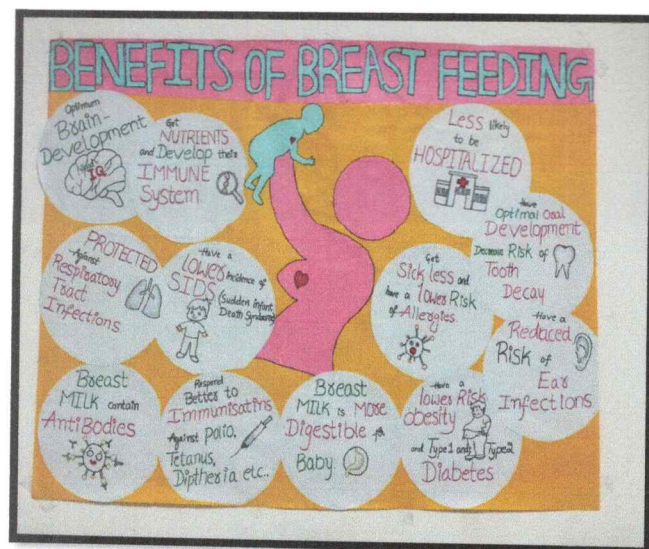 BENEFITS OF BREAST FEEDING
Optimum
Brain-
Development
High
IQ
Get
NUTRIENTS
and Develop their
IMMUNE
System
Less likely
to be
HOSPITALIZED
Have
Optimal Oral
Development
Decrease Risk of
Tooth
Decay
PROTECTED
Against
Respiratory
Tract
Infections
Have a
LOWER incidence of
SIDS
(Sudden infant
Death Syndrome)
Get
Sick less and
have a lower Risk
of Allergies
Have a
Reduced
Risk of
Ear
Infections
Breast
MILK contain
AntiBodies
Respond
Better to
Immunisatins
Against Polio,
Tetanus,
Diptheria etc..
Breast
MILK is More
Digestible
Baby
Have a
lower Risk
obesity
and Type1 and Type2
Diabetes